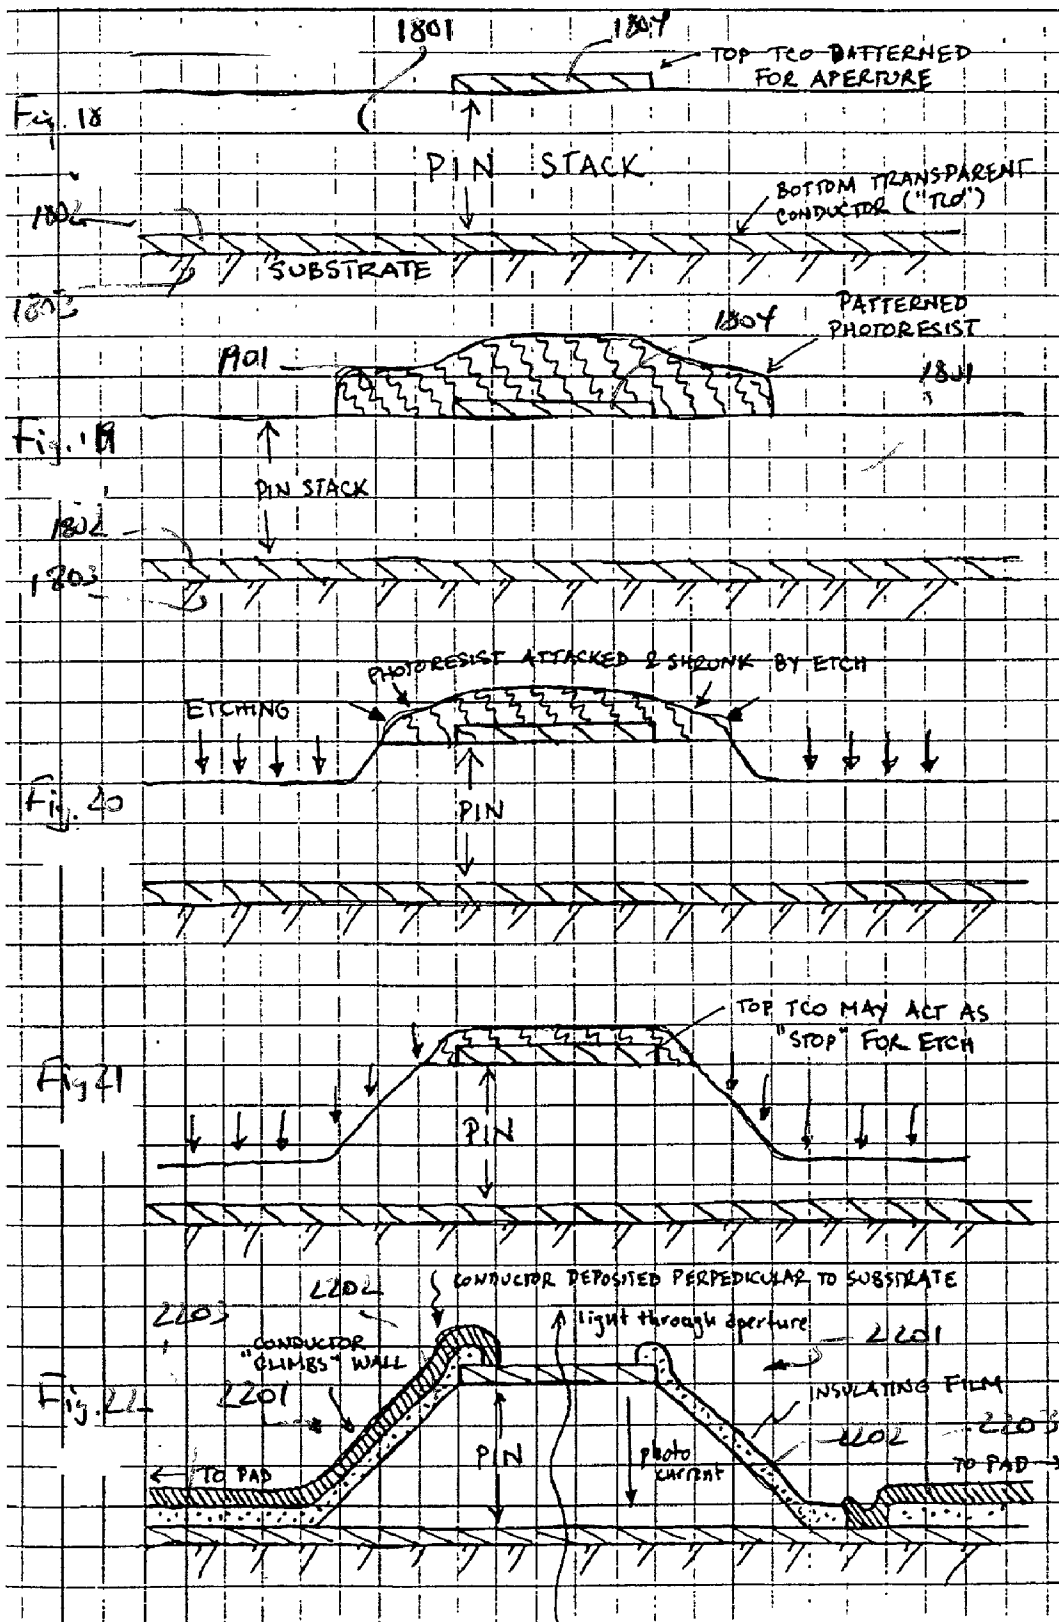 1801
1804
TOP TCO PATTERNED
FOR APERTURE
Fig. 18
PIN STACK
BOTTOM TRANSPARENT
CONDUCTOR ("TCO")
1802
SUBSTRATE
1803
PATTERNED
PHOTORESIST
1804
1901
1801
Fig. 19
PIN STACK
1802
1803
PHOTORESIST ATTACKED & SHRUNK BY ETCH
ETCHING
Fig. 20
PIN
TOP TCO MAY ACT AS
"STOP" FOR ETCH
Fig 21
PIN
CONDUCTOR DEPOSITED PERPEDICULAR TO SUBSTRATE
2202
2203
light through aperture
2201
"CONDUCTOR
CLIMBS" WALL
2201
INSULATING FILM
Fig. 22
2202
2203
PIN
photo
current
← TO PAD
TO PAD →